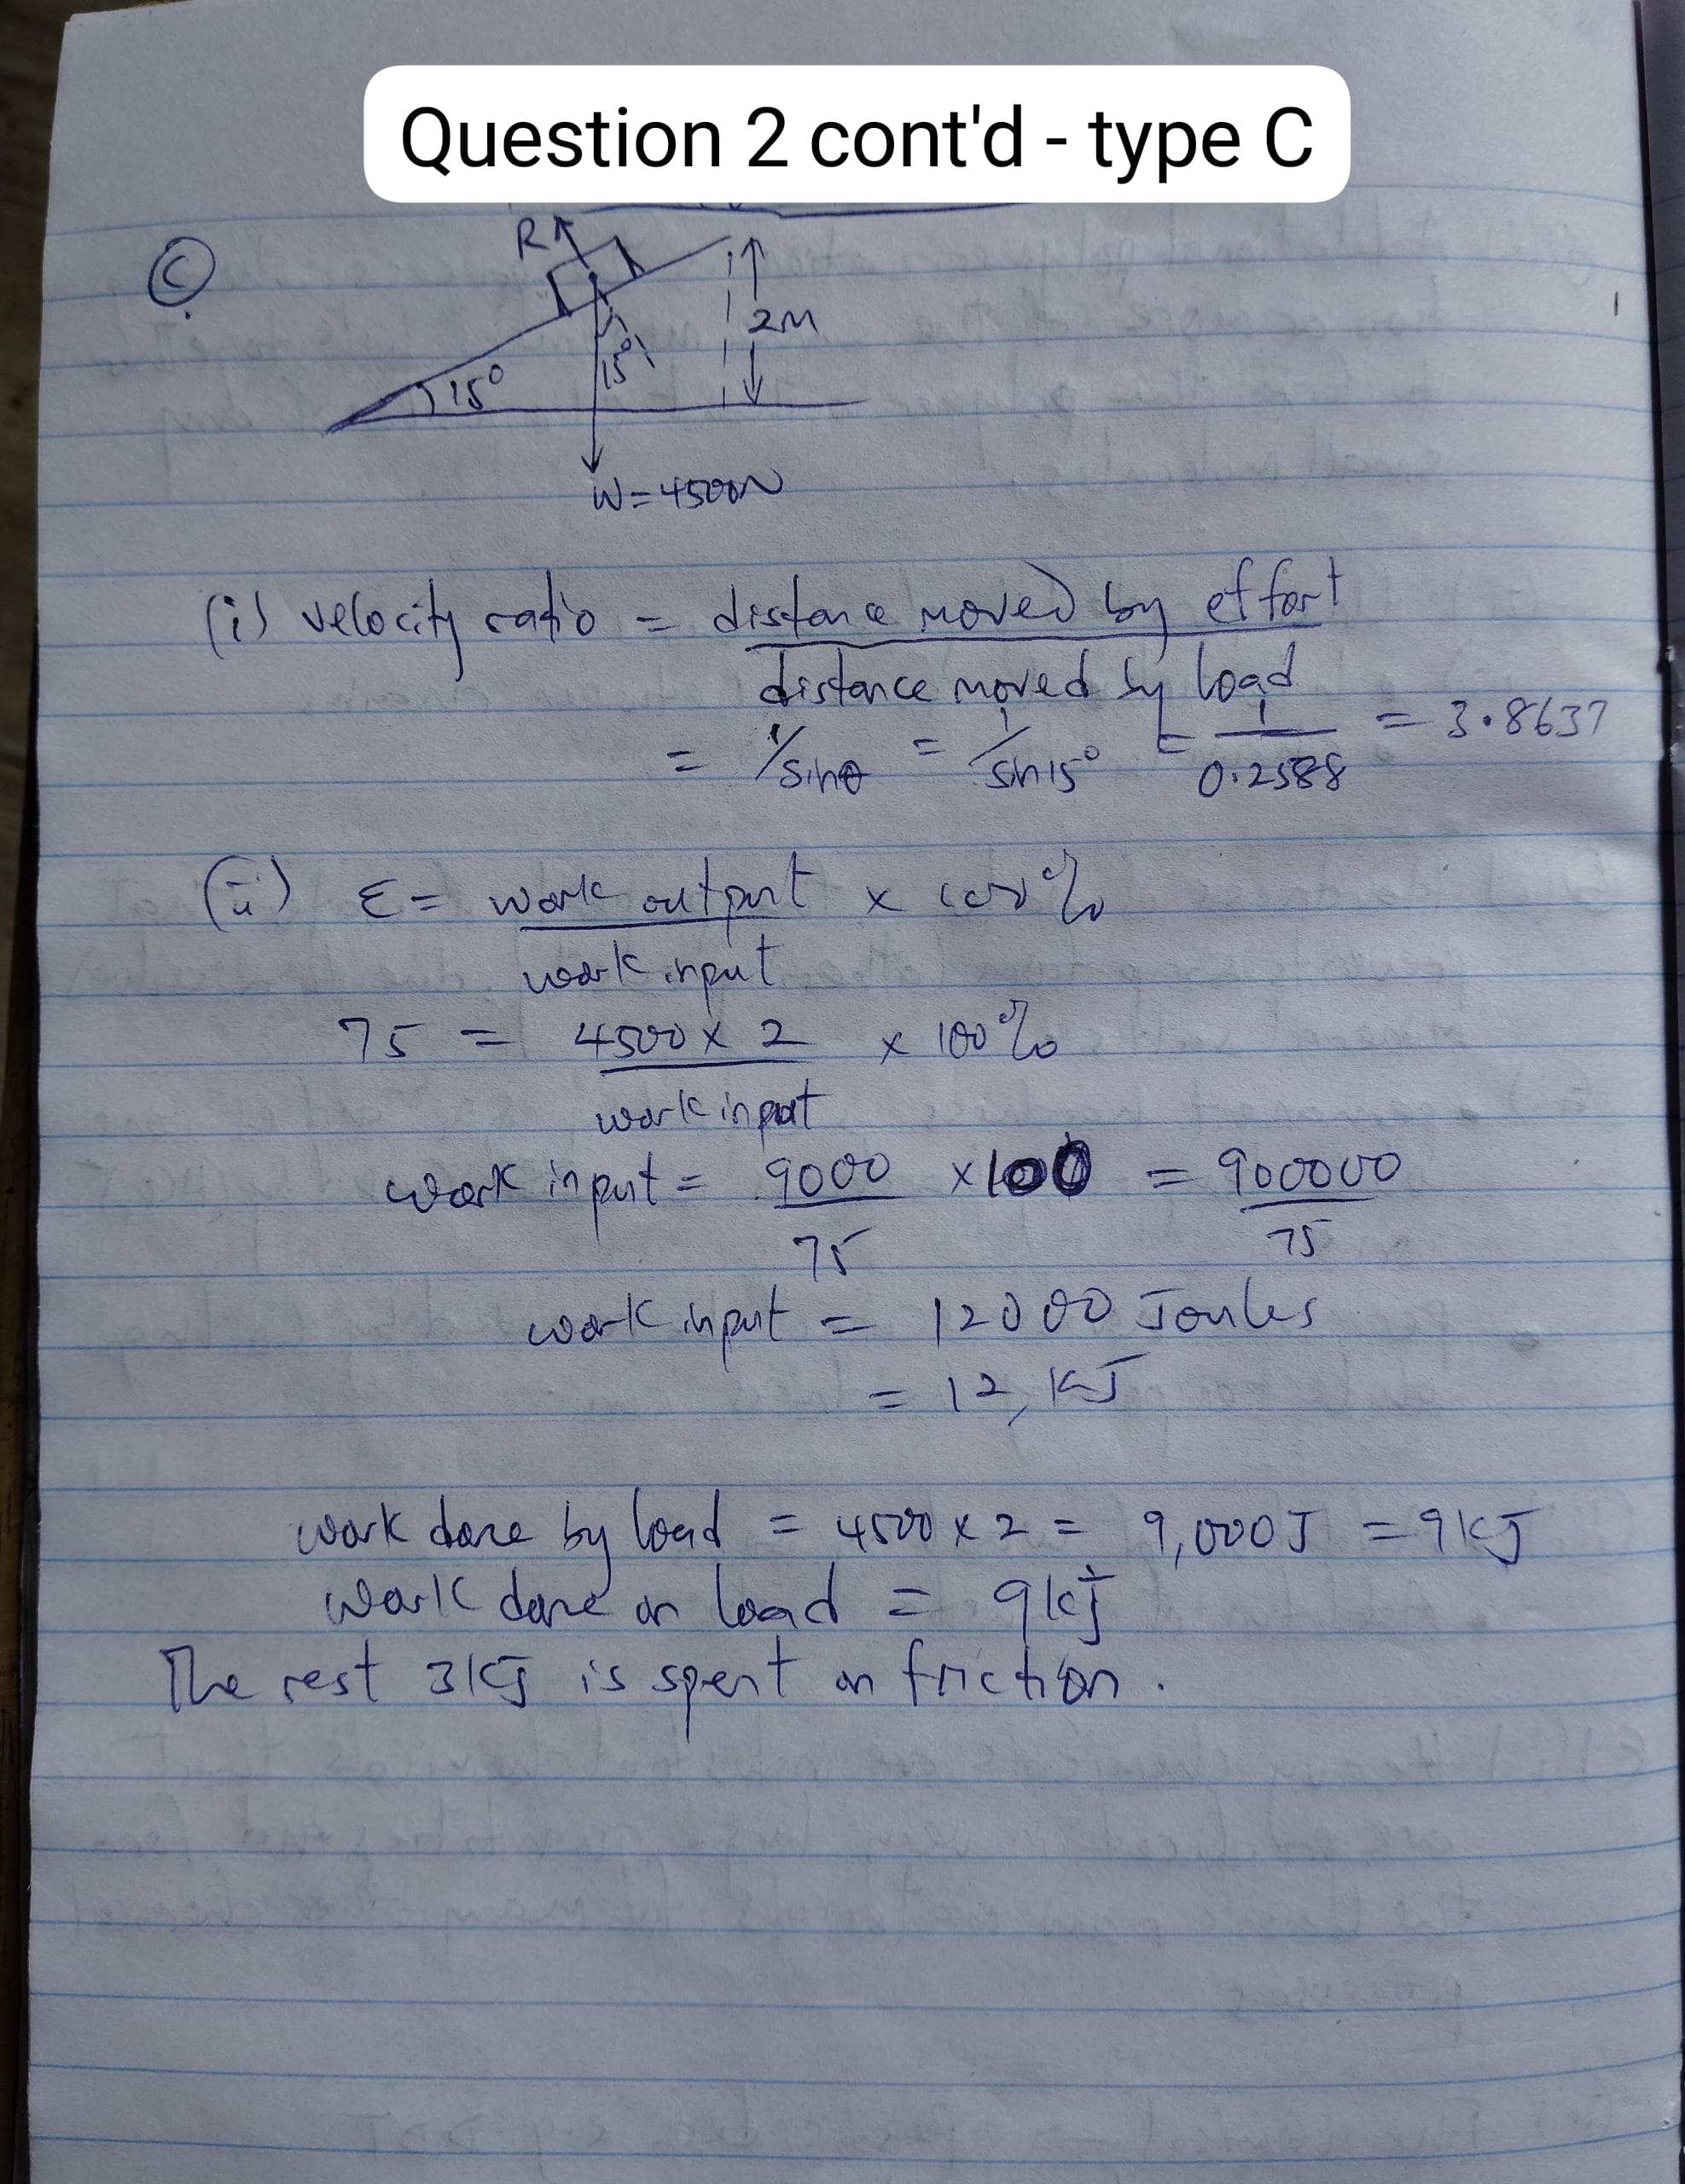 Question 2 cont'd - type C
C
R
2M
15°
15°
W = 4500N
(i) velocity ratio = distance moved by effort
distance moved by load
= 1/sinθ = 1/sin15° = 1/0.2588 = 3.8637
(ii) ε = work output × 100%
work input
75 = 4500 × 2 × 100%
work input
work input = 9000 × 100 = 900000
75 75
work input = 12000 Joules
= 12, KJ
work done by load = 4500 × 2 = 9,000J = 9KJ
Work done on load = 9kj
The rest 3KJ is spent on friction.